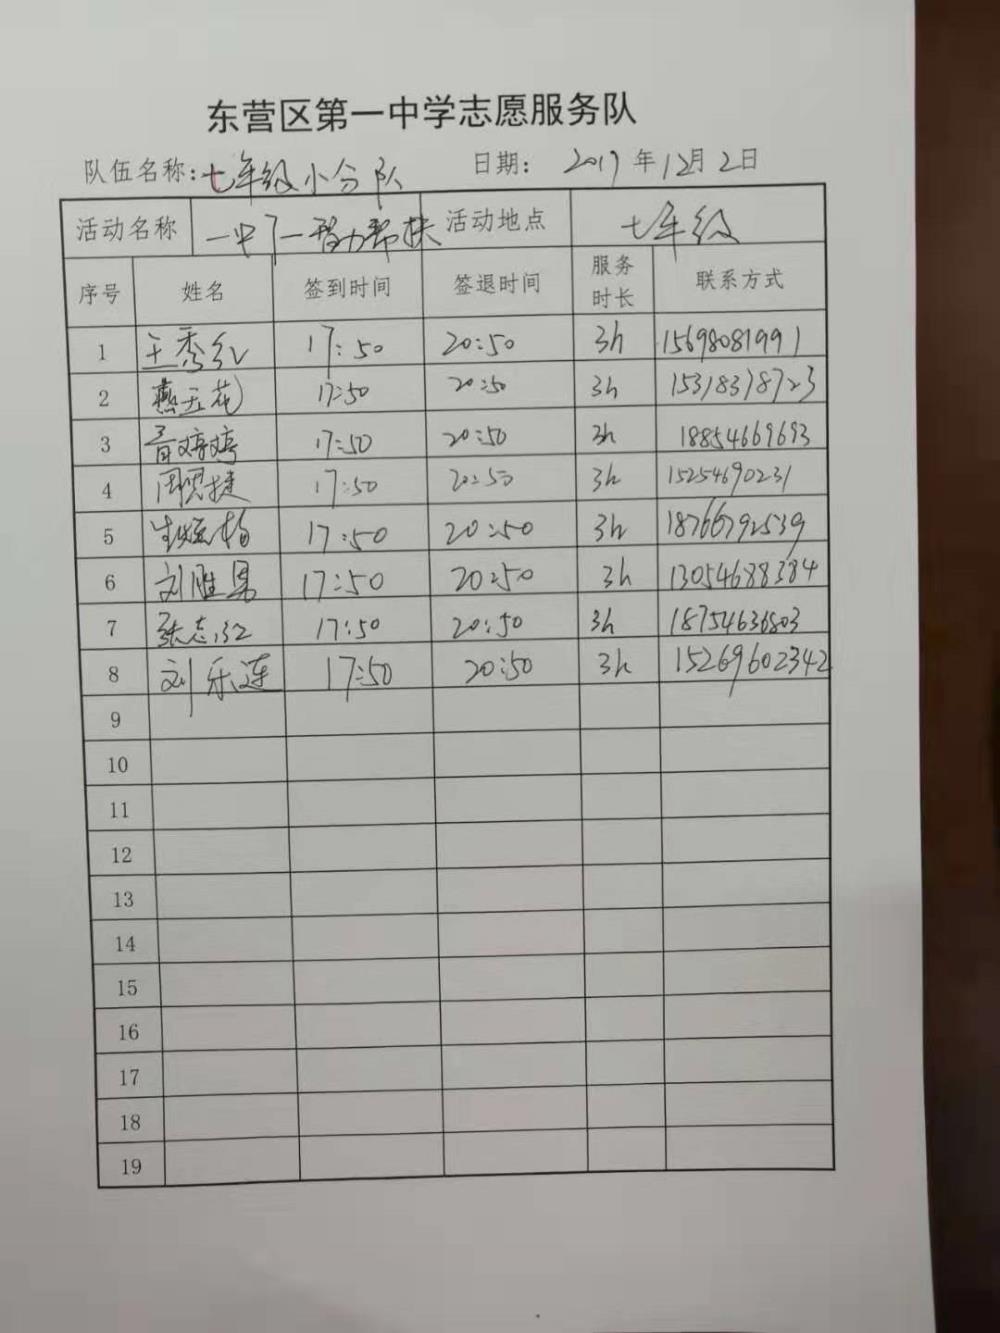 东营区第一中学志愿服务队
队伍名称:七年级小分队 日期: 2017年12月2日
活动名称 一中 一智力帮扶 活动地点 七年级
序号 姓名 签到时间 签退时间 服务时长 联系方式
1 王秀红 17:50 20:50 3h 15698081991
2 燕玉花 17:50 20:50 3h 15318318723
3 婷婷 17:50 20:50 3h 18854669693
4 周思捷 17:50 20:50 3h 15254690231
5 17:50 20:50 3h 18766792539
6 刘胜男 17:50 20:50 3h 13054688384
7 张志 17:50 20:50 3h 18754636803
8 刘乐莲 17:50 20:50 3h 15269602342
9
10
11
12
13
14
15
16
17
18
19